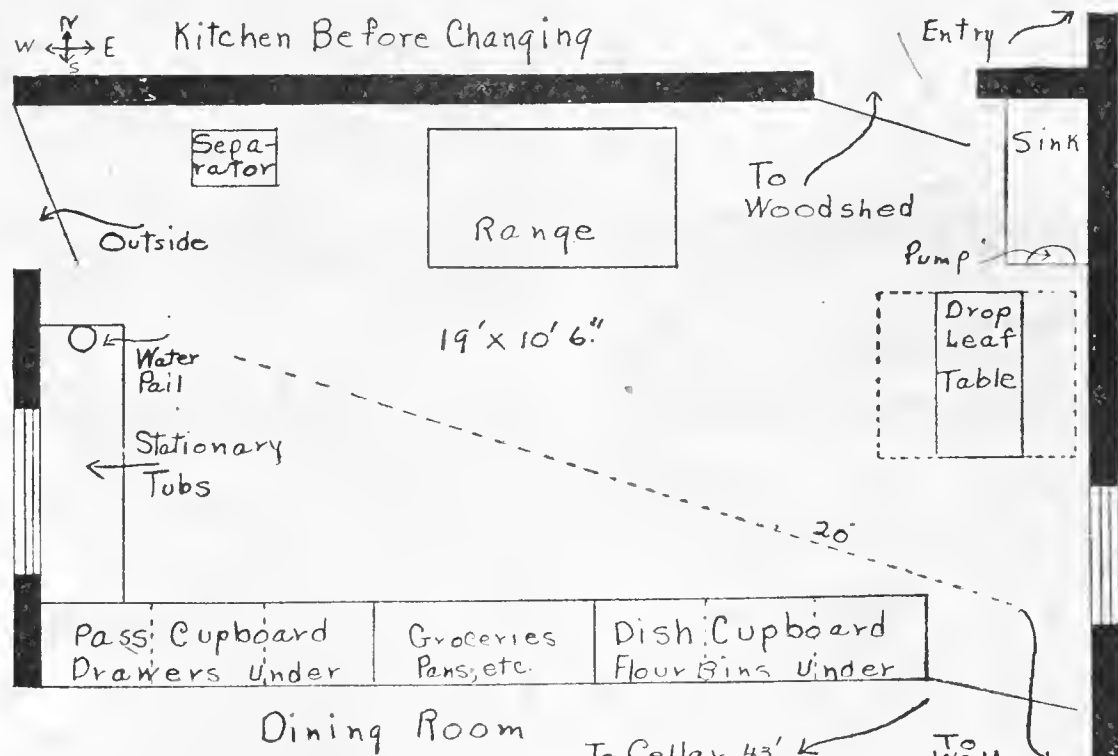 N
W E
S
Kitchen Before Changing
Entry
Sepa-
rator
Range
To
Woodshed
Sink
Outside
Pump
Drop
Leaf
Table
19' x 10' 6"
Water
Pail
Stationary
Tubs
20'
Pass Cupboard
Drawers Under
Groceries
Pans, etc.
Dish Cupboard
Flour Bins Under
Dining Room
To Cellar 43'
To